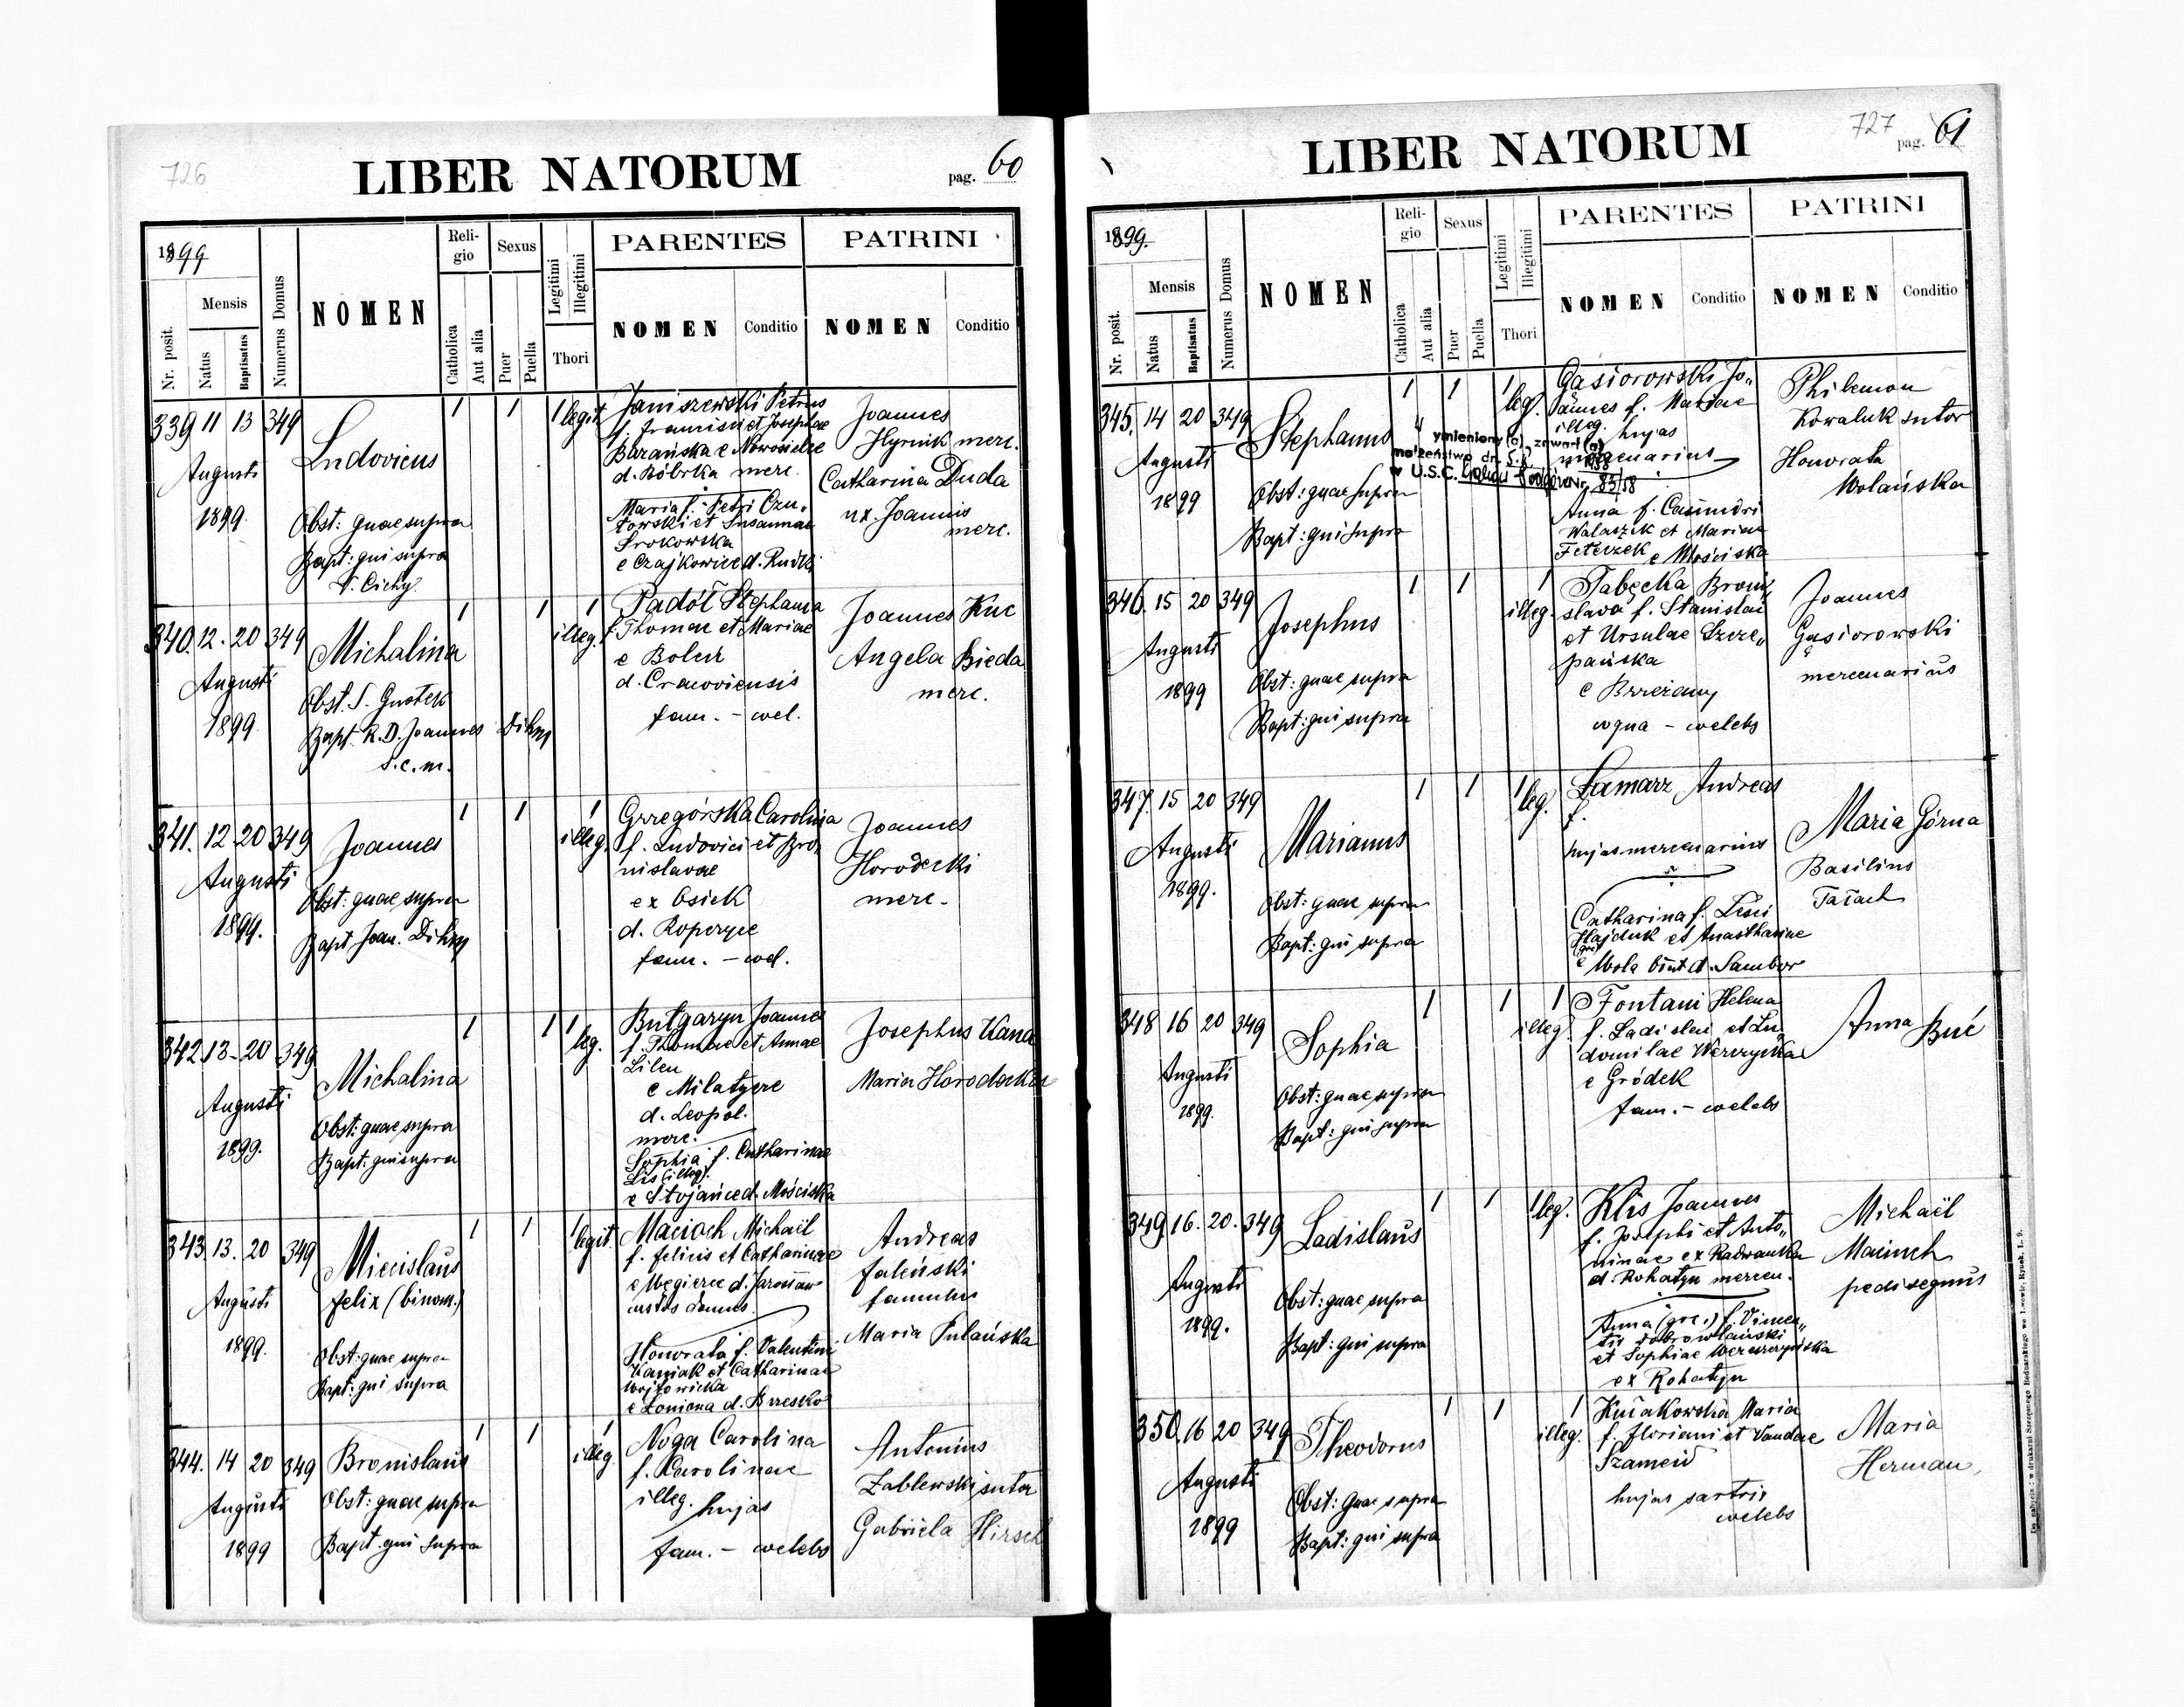 726
LIBER NATORUM
pag. 60
1899
Nr. posit.
Mensis
Natus
Baptisatus
Numerus Domus
NOMEN
Religio
Catholica
Aut alia
Sexus
Puer
Puella
Legitimi
Illegitimi
Thori
PARENTES
NOMEN
Conditio
PATRINI
NOMEN
Conditio
339 11 13 349
Augusti
1899
Ludovicus
Obst: quae supra
Bapt: qui supra
V. Cichy
1 1 1 legit.
Janiszewski Petrus
f. Francisci et Josephae
Barańska e Nowosielce
d. Bóbrka merc.
Maria f. Petri
et Susannae
Srokowska
e Czajkowice d. Rudki
Joannes
Hyrnik merc.
Catharina Duda
ux. Joannis
merc.
340. 12. 20 349
Augusti
1899.
Michalina
Obst. S. Gnotek
Bapt. R. D. Joannes Dihm
S.c.m.
1 1 1
illeg.
Padół Stephania
f. Thomae et Mariae
e
d. Cracoviensis
fam. - cael.
Joannes Kuc
Angela Bieda
merc.
341. 12 20 349
Augusti
1899.
Joannes
Obst: quae supra
Bapt Joan. Dihm
1 1 1
illeg.
Grzegórska Carolina
f. Ludovici et Bro„
nislavae
ex Osiek
d. Ropczyce
fam. - cael.
Joannes
Horodecki
merc.
342 13. 20 349
Augusti
1899.
Michalina
Obst: quae supra
Bapt: qui supra
1 1 1
leg.
Joannes
f. Thomae et Annae
Lilen
e Milatycze
d. Leopol.
merc.
Sophia f. Catharinae
Lis (illeg).
e Stojańce d. Mościska
Josephus Kana
Maria Horodecka
343. 13. 20 349
Augusti
1899.
Miecislaus
Felix (binom.)
Obst: quae supra
Bapt: qui supra
1 1 1
legit.
Macioch Michaël
f. Felicis et Catharinae
e Węgierce d. Jarosław
custos domus.
Honorata f. Valentini
Kaniak et Catharinae
Wojtowicka
e Łoniowa d. Brzesko
Andreas
Faleński
famulus
Maria Pulańska
344. 14 20 349
Augusti
1899
Bronislaus
Obst: quae supra
Bapt. qui supra
1 1 1
illeg.
Noga Carolina
f. Karolinae
illeg. hujas
fam. - caelebs
Antonius
Zablewski sutor
Gabriela Hirsch
727
LIBER NATORUM
pag. 61
1899.
Nr. posit.
Mensis
Natus
Baptisatus
Numerus Domus
NOMEN
Religio
Catholica
Aut alia
Sexus
Puer
Puella
Legitimi
Illegitimi
Thori
PARENTES
NOMEN
Conditio
PATRINI
NOMEN
Conditio
345. 14 20 349
Augusti
1899
Stephanus
Obst: quae supra
Bapt: qui supra
1 1 1
leg.
Wymieniony(a) zawarł(a)
małżeństwo dn.
w U.S.C. 83/58
Gasiorowski Jo„
annes f. Mariae
illeg. hujas
mercenarius
Anna f. Casimiri
Walaszek et Mariae
Feterzek e Mościska
Philemon
Kowaluk sutor
Honorata
Wolańska
346. 15 20 349
Augusti
1899
Josephus
Obst: quae supra
Bapt: qui supra
1 1 1
illeg.
Tabęcka Broni„
slava f. Stanislai
et Ursulae Szcze„
pańska
e Brzeżany
coqua - caelebs
Joannes
Gąsiorowski
mercenarius
347. 15 20 349
Augusti
1899.
Marianus
Obst: quae supra
Bapt: qui supra
1 1 1
leg.
Łamarz Andreas
f.
hujas mercenarius
Catharina f. Lesci
Hajduk et Anasthasiae
e Wola d. Sambor
Maria Górna
Basilius
Tatach
348 16 20 349
Augusti
1899.
Sophia
Obst: quae supra
Bapt: qui supra
1 1 1
illeg.
Fontani Helena
f. Ladislai et Lu„
domilae
e Gródek
fam. - caelebs
Anna Buć
349. 16. 20. 349
Augusti
1899.
Ladislaus
Obst: quae supra
Bapt: qui supra
1 1 1
leg.
Klis Joannes
f. Josephi et Anto„
ninae ex Radwanka
d. Rohatyn mercen.
Anna (gr.c.) f. Vincen„
tii Dobrowlański
et Sophiae
ex Rohatyn
Michaël
Macioch
pedisequus
350. 16 20 349
Augusti
1899
Theodorus
Obst: quae supra
Bapt: qui supra
1 1 1
illeg.
Maria
f. Floriani et Vandae
Szameid
hujas sartrix
caelebs
Maria
Herman,